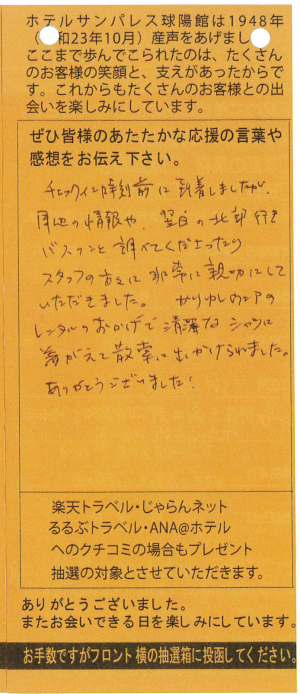 ホテルサンパレス球陽館は1948年
和23年10月）産声をあげまし
ここまで歩んでこられたのは、たくさん
のお客様の笑顔と、支えがあったからで
す。これからもたくさんのお客様との出
会いを楽しみにしています。
ぜひ皆様のあたたかな応援の言葉や
感想をお伝え下さい。
チェックイン時刻前に到着しましたが、
周辺の情報や、翌日の北部行き
バスプランと調べてくださったり
スタッフの方々に非常に親切にして
いただきました。かりゆしウェアの
レンタルのおかげで清潔なシャツに
着がえて散策に出かけられました。
ありがとうございました！
楽天トラベル・じゃらんネット
るるぶトラベル・ANA@ホテル
へのクチコミの場合もプレゼント
抽選の対象とさせていただきます。
ありがとうございました。
またお会いできる日を楽しみにしています。
お手数ですがフロント横の抽選箱に投函してください。